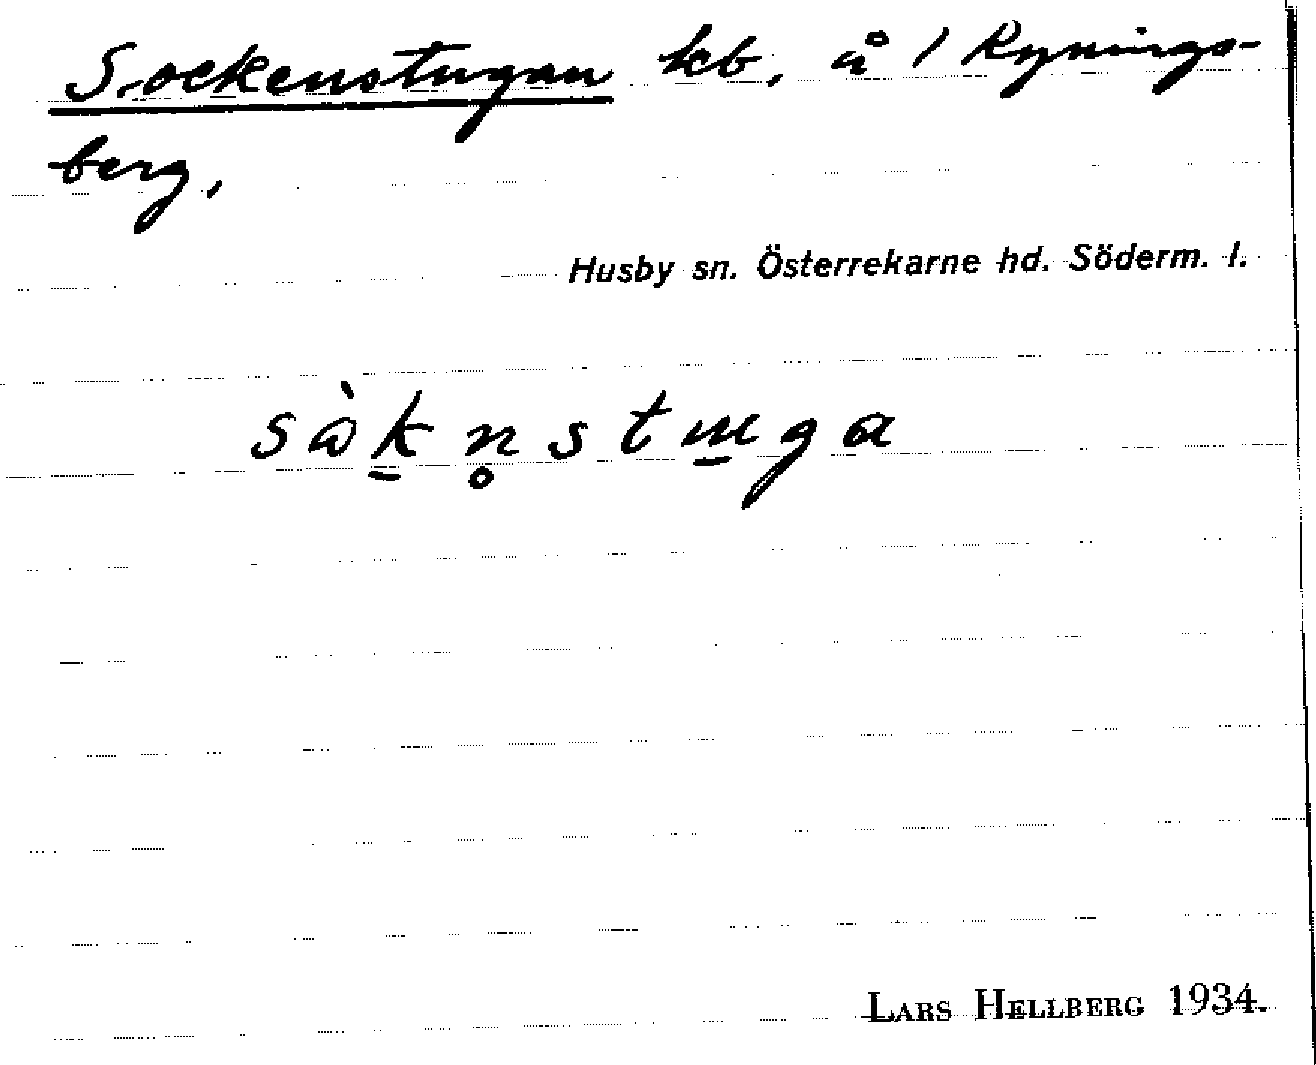 Sockenstugan lcb, å 1 Rynings-
berg,
Husby sn. Österrekarne hd. Söderm. l.
LARS HELLBERG 1934.